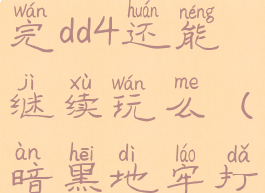 wán huán néng
完dd4还能
jì xù wán me
继续玩么（
àn hēi dì láo dǎ
暗黑地牢打